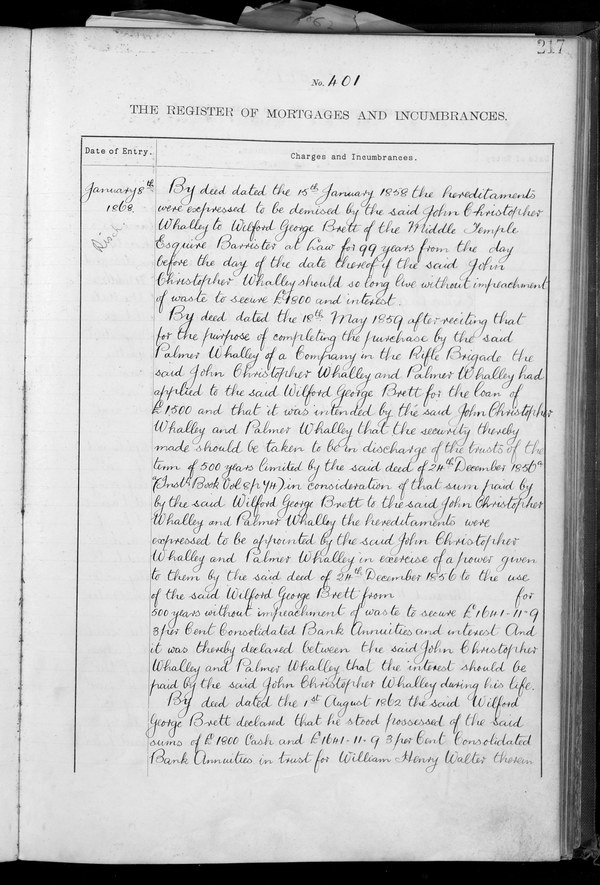 217
No. 401
THE REGISTER OF MORTGAGES AND INCUMBRANCES.
Date of Entry.
Charges and Incumbrances.
January 8th
1868.
By deed dated the 15th January 1858 the hereditaments
were expressed to be demised by the said John Christopher
Whalley to Wilford George Brett of the Middle Temple
Esquire Barrister at Law for 99 years from the day
before the day of the date thereof if the said John
Christopher Whalley should so long live without impeachment
of waste to secure £1800 and interest.
By deed dated the 18th May 1859 after reciting that
for the purpose of completing the purchase by the said
Palmer Whalley of a Company in the Rifle Brigade the
said John Christopher Whalley and Palmer Whalley had
applied to the said Wilford George Brett for the loan of
£1500 and that it was intended by the said John Christopher
Whalley and Palmer Whalley that the security thereby
made should be taken to be in discharge of the trusts of the
term of 500 years limited by the said deed of 24th December 1856
(Inst. Book Vol 8 p 44) in consideration of that sum paid by
by the said Wilford George Brett to the said John Christopher
Whalley and Palmer Whalley the hereditaments were
expressed to be appointed by the said John Christopher
Whalley and Palmer Whalley in exercise of a power given
to them by the said deed of 24th December 1856 to the use
of the said Wilford George Brett from for
500 years without impeachment of waste to secure £1641-11-9
3 per Cent Consolidated Bank Annuities and interest And
it was thereby declared between the said John Christopher
Whalley and Palmer Whalley that the interest should be
paid by the said John Christopher Whalley during his life.
By deed dated the 1st August 1862 the said Wilford
George Brett declared that he stood possessed of the said
sums of £1800 Cash and £1641-11-9 3 per Cent Consolidated
Bank Annuities in trust for William Henry Walter therein